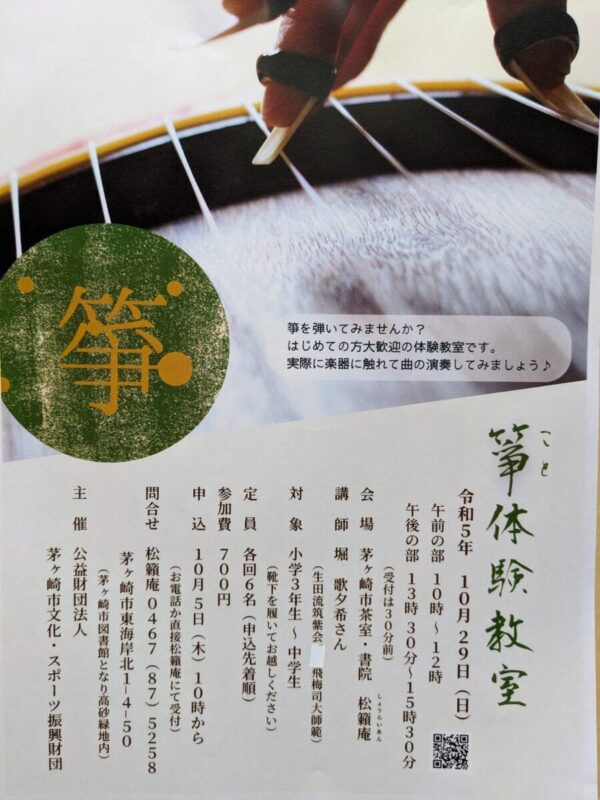 箏
箏を弾いてみませんか？
はじめての方大歓迎の体験教室です。
実際に楽器に触れて曲の演奏してみましょう♪
こと
箏体験教室
令和5年 10月29日（日）
午前の部 10時～12時
午後の部 13時30分～15時30分
（受付は30分前）
会場 茅ヶ崎市茶室・書院 松籟庵
しょうらいあん
講師 堀 歌夕希さん
（生田流筑紫会 飛梅司大師範）
対象 小学3年生～中学生
（靴下を履いてお越しください）
定員 各回6名（申込先着順）
参加費 700円
申込 10月5日（木）10時から
（お電話か直接松籟庵にて受付）
問合せ 松籟庵 0467（87）5258
茅ヶ崎市東海岸北1-4-50
（茅ヶ崎市図書館となり高砂緑地内）
主催 公益財団法人
茅ヶ崎市文化・スポーツ振興財団